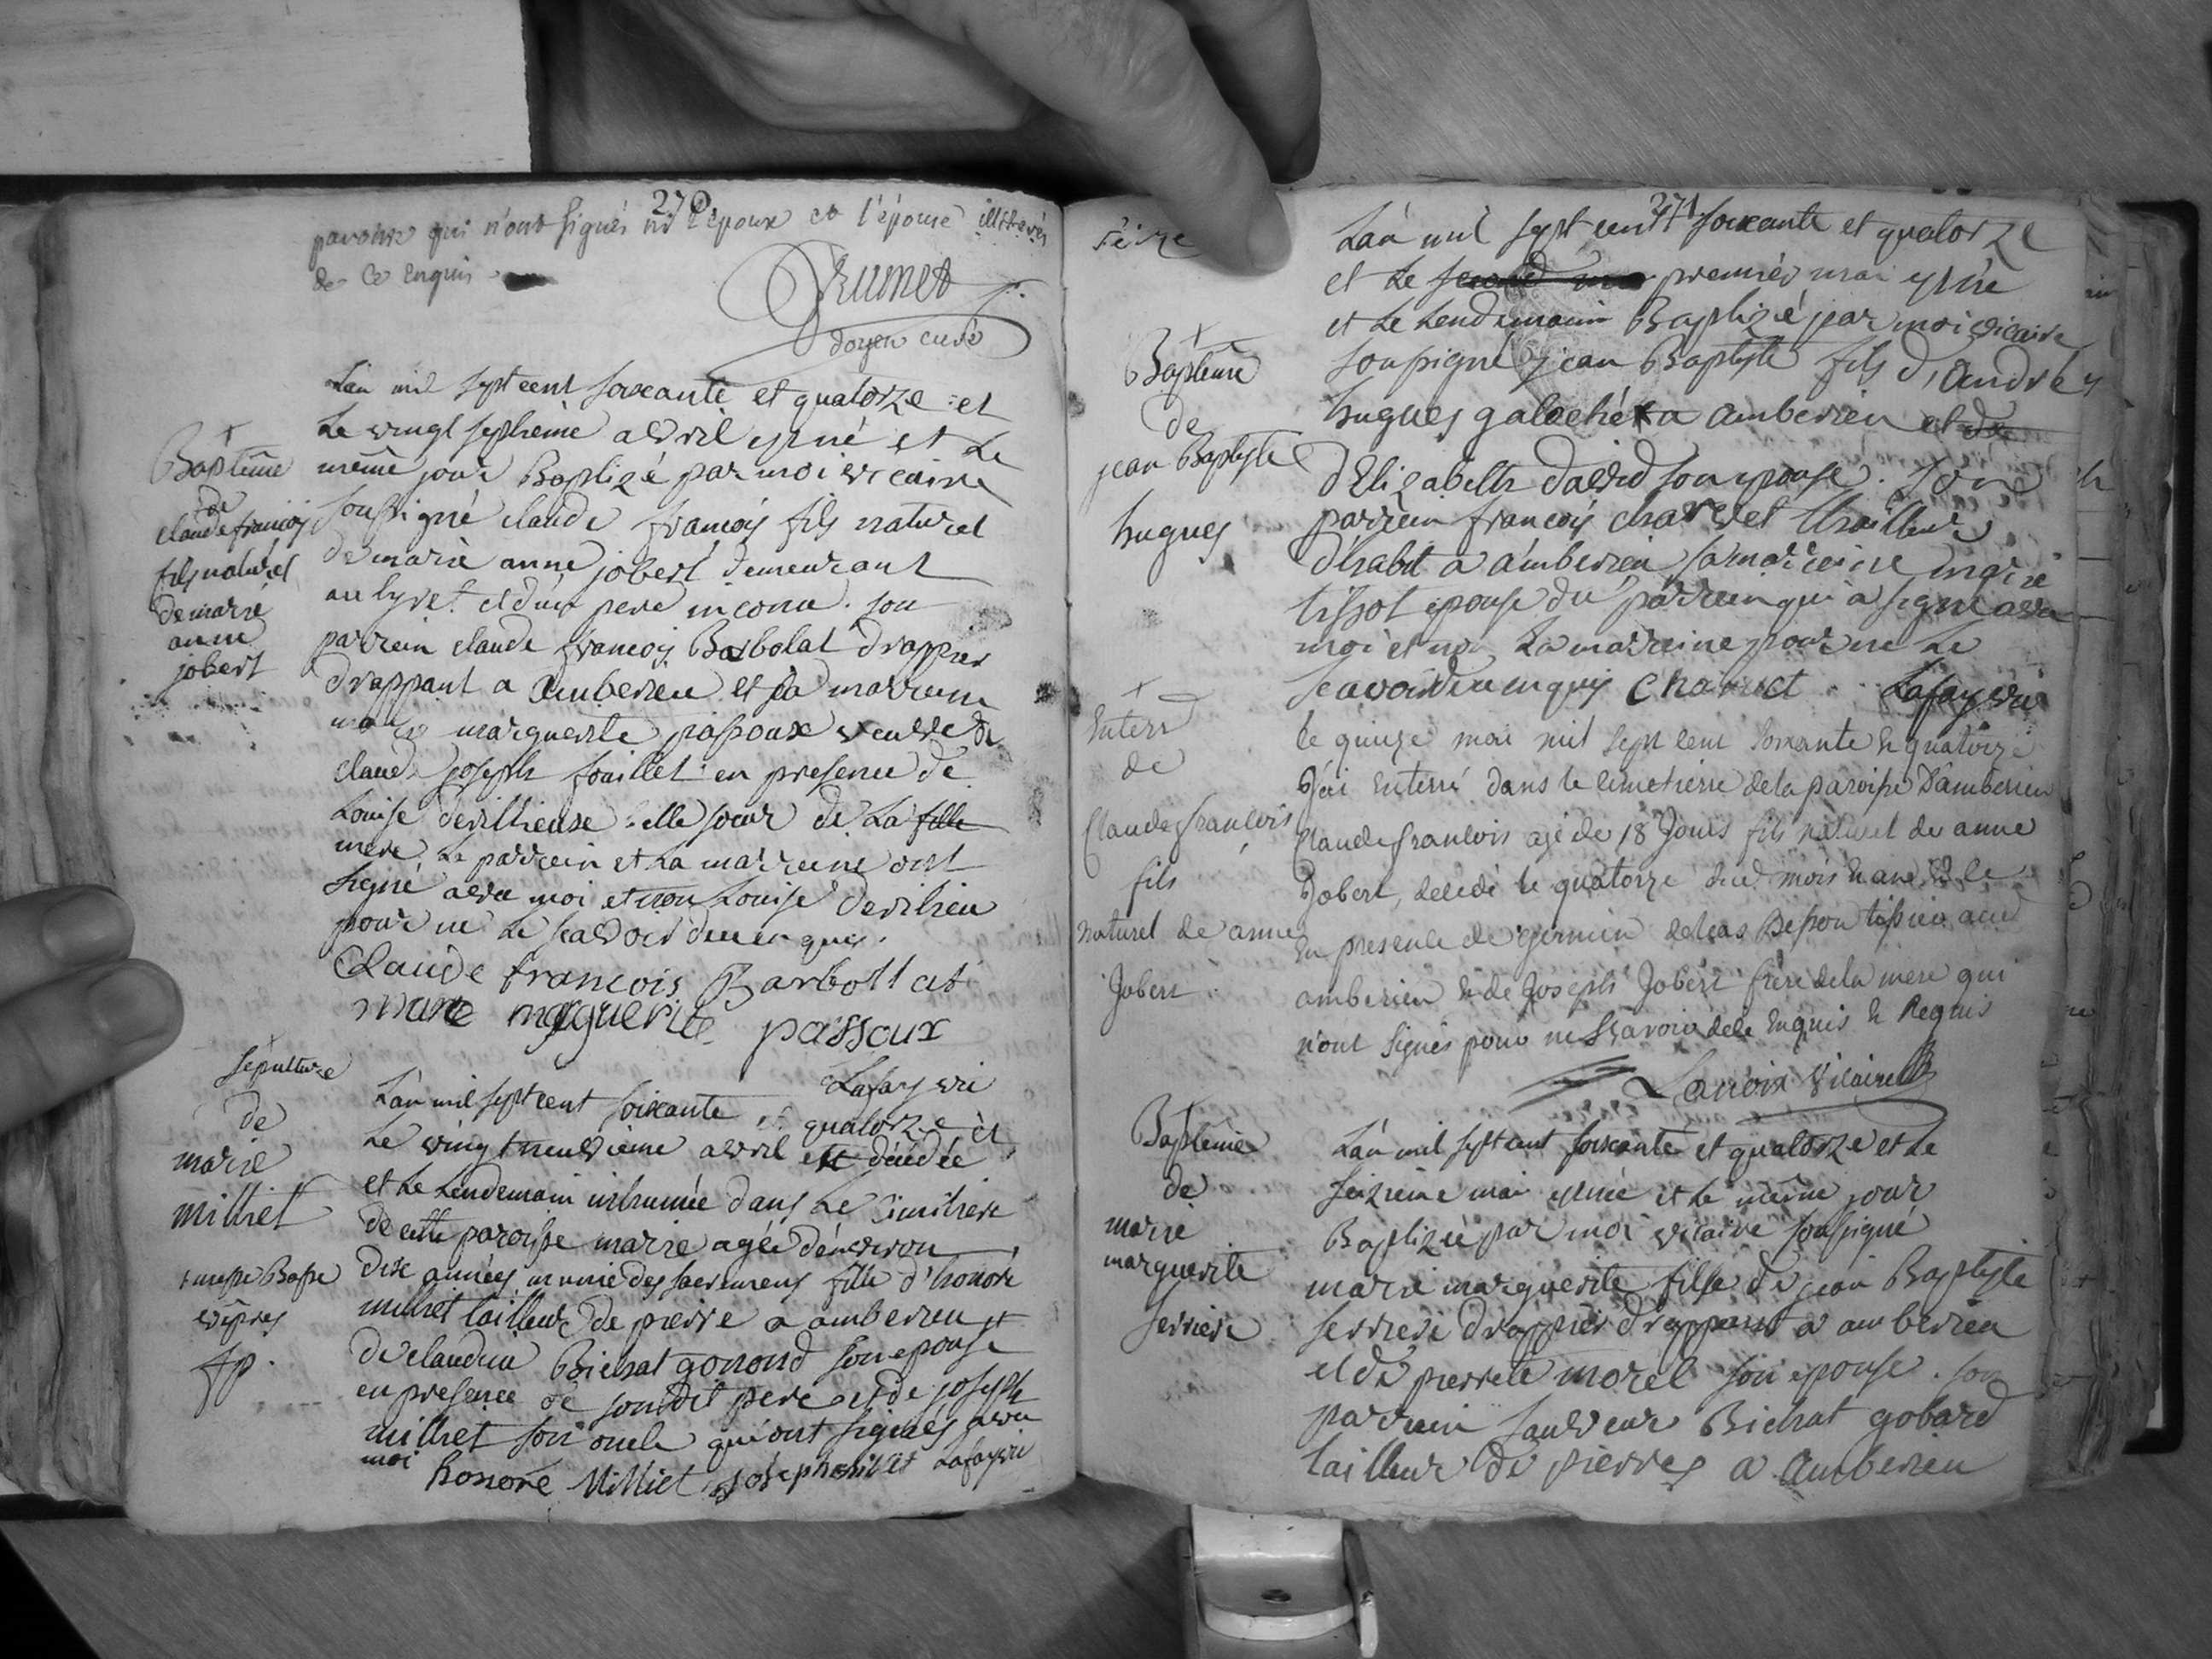 270
paroisse qui n'ont signés ni l'époux et l'épouse illiterés
de ce enquis
Trumet
doyen curé
Baptême
de
claude françois
fils naturel
de marie
anne
jobert
L'an mil sept cent soixante et quatorze et
le vingt septieme avril est né et le
même jour Baptizé par moi vicaire
soussigné claude françois fils naturel
de marie anne jobert demeurant
au tyret et d'un pere inconu. son
parrein claude françois Barbolat drappier
drappant a amberieu et sa marreine
marie marguerite passoux veuve de
claude joseph fouillet en presence de
Louise devillieuse belle soeur de la fille
mere. Le parrein et la marreine ont
signé avec moi et non Louise devilieu
pour ne le scavoir deue enquis.
Claude francois Barbollat
marie marguerite passoux
Lafay vic
sépulture
de
marie
milliet
messe Basse
vêpres
L'an mil sept cent soixante et quatorze et
le vingt neuvieme avril est décedée
et le lendemain inhumée dans le cimitiere
de cette paroisse marie agée d'environ
dix années munie des sacremens fille d'honoré
milliet tailleur de pierre a amberieu et
de claudine Bichat gonond son epouse
en presence de sondit pere et de joseph
milliet son oncle qui ont signés avec
moi honoré Milliet joseph milliet Lafay vic
271
Baptême
de
jean Baptyste
hugues
L'an mil sept cent soixante et quatorze
et le second mai premier mai est né
et le lendemain Baptizé par moi vicaire
soussigné jean Baptyste fils d'André
hugues galoché a amberieu et de
d'Elizabeth david son epouse. son
parrein françois charvet thailleur
d'habit a amberieu sa marreine marie
tissot epouse du parrein qui a signé avec
moi et non la marreine pour ne le
scavoir deu enquis Charvet Lafay vic
Enterr
de
Claude françois
fils
naturel de anne
Jobert
le quinze mai mil sept cent soixante & quatorze
j'ai enterré dans le cimetierre de la paroisse d'amberieu
Claude francois agé de 18 jours fils naturel de anne
Jobert, decedé le quatorze dud. mois & an
en presence de germain delcas Besson tissier aud
amberieu & de Joseph Jobert frere de la mere qui
n'ont signés pour ne scavoir de ce enquis & Requis
Lanoix vicaire
Baptême
de
marie
marguerite
serriere
L'an mil sept cent soixante et quatorze et le
seizieme mai est née et le même jour
Baptizée par moi vicaire soussigné
marie marguerite fille de jean Baptyste
serriere drappier drappant a amberieu
et de pierrete morel son epouse. son
parrein sauveur Bichat gobard
tailleur de pierres a amberieu